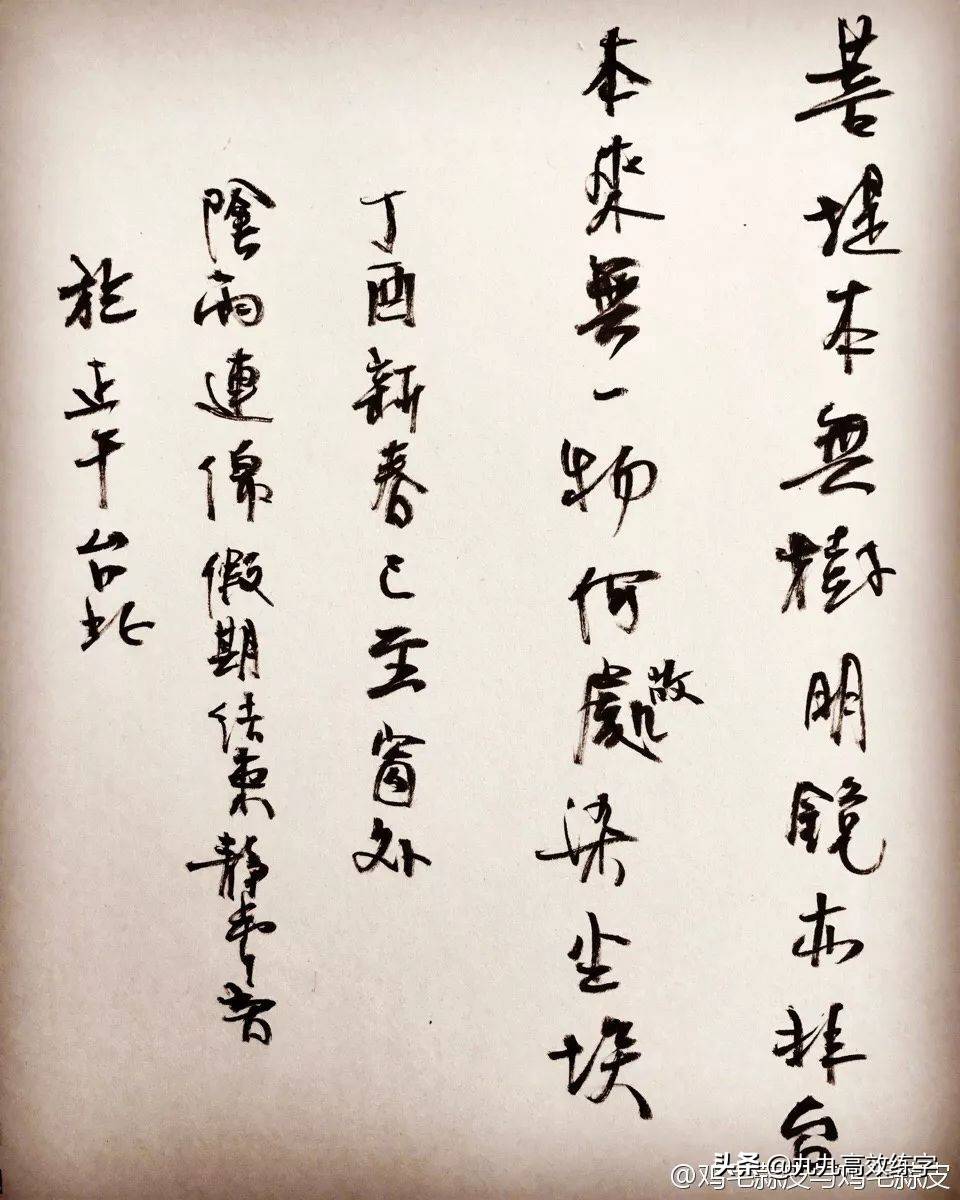 菩提本無樹明鏡亦非台
本來無一物何處故染尘埃
丁酉新春已至窗外
陰雨連綿假期结束靜書
於正午台北
头条@九九高效练字
@鸡毛蒜皮与鸡毛蒜皮